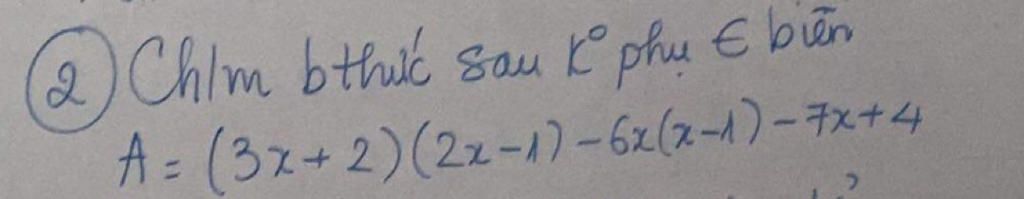 ② Ch/m bthức sau k° phụ ∈ biến
A = (3x+2)(2x-1)-6x(x-1)-7x+4